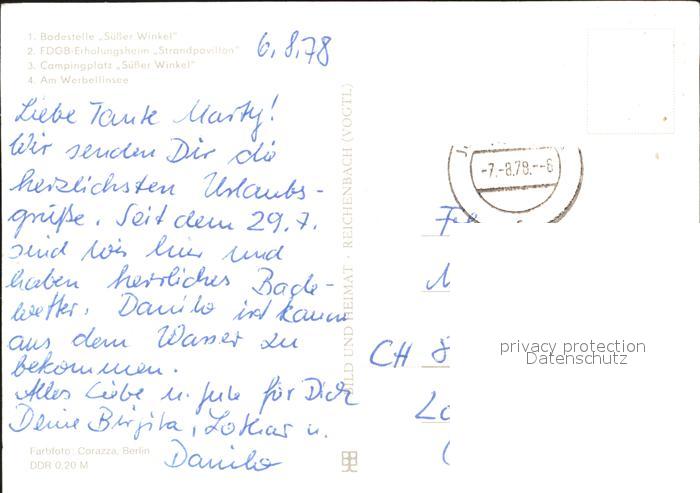 1. Badestelle „Süßer Winkel"
2. FDGB-Erholungsheim „Strandpavillon"
3. Campingplatz „Süßer Winkel"
4. Am Werbellinsee
6.8.78
Liebe Tante Marty!
Wir senden Dir die
herzlichsten Urlaubs-
grüße. Seit dem 29.7.
sind wir hier und
haben herrliches Bade-
wetter. Danilo ist kaum
aus dem Wasser zu
bekommen.
Alles Liebe u. Gute für Dich
Deine Birgita, Lothar u.
Danilo
Farbfoto: Corazza, Berlin
DDR 0,20 M
BILD UND HEIMAT · REICHENBACH (VOGTL)
-7.-8.78.--6
CH 8
privacy protection
Datenschutz